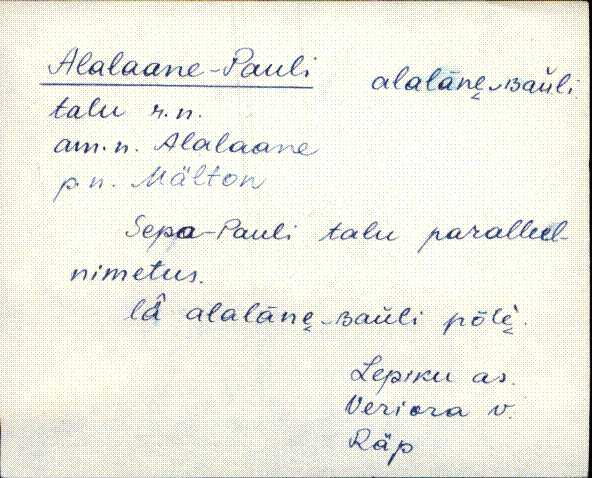 Alalaane-Pauli alalāne̮-ʙaŭli
talu r.n.
am.n. Alalaane
p.n. Mälton
Sepa-Pauli talu paralleel-
nimetus.
lä̂ alalāne̮-ʙaŭli pōlè̮.
Lepiku as.
Veriora v.
Räp